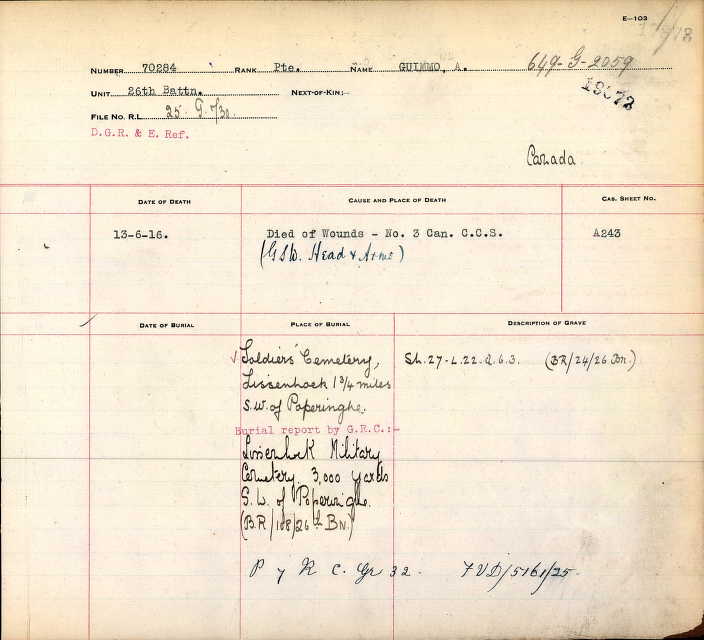 E—103
NUMBER 70284 RANK Pte. NAME GUIMMO, A. 649-G-2059
19072
UNIT 26th Battn. NEXT-OF-KIN:—
FILE No. R.L. 25. G 7/30.
D.G.R. & E. Ref.
Canada
DATE OF DEATH CAUSE AND PLACE OF DEATH CAS. SHEET NO.
13-6-16. Died of Wounds - No. 3 Can. C.C.S. A243
(GSW. Head & Arms)
DATE OF BURIAL PLACE OF BURIAL DESCRIPTION OF GRAVE
Soldiers' Cemetery, Sh. 27-L.22.d.6.3. (BR/24/26 Bn.)
Lissenhoek 1 3/4 miles
S.W. of Poperinghe.
Burial report by G.R.C.:-
Military
Cemetery 3,000 yards
S.W. of Poperinghe.
(B.R/108/26th BN.)
P y R C. Gr 32. 7VD/5161/25.